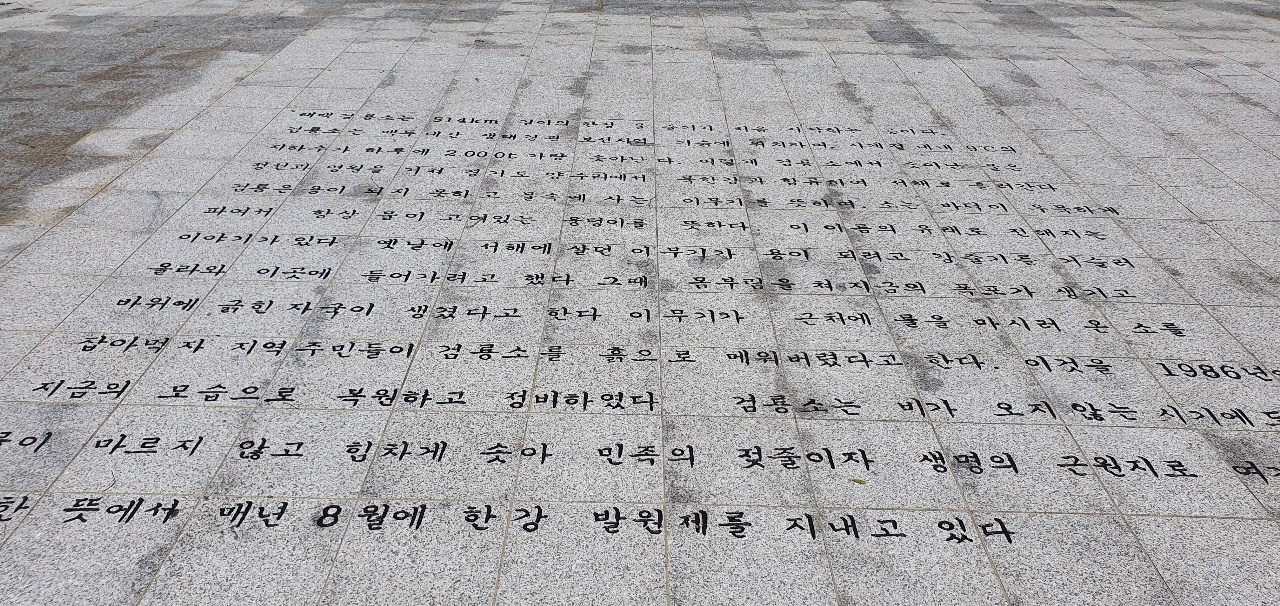 태백 검룡소는 514km 길이의 한강 중 물이 처음 시작하는
검룡소는 백두대간 생태경관 보전지역 기슭에 위치하여, 사계절 내내 9℃의
지하수가 하루에 2000t 가량 솟아난다. 이렇게 검룡소에서 솟아난 물은
정선과 영월을 거쳐 경기도 양수리에서 북한강과 합류하여 서해로 흘러간다
검룡은 용이 되지 못하고 물속에 사는 이무기를 뜻하며, 소는 바닥이 우묵하게
파여서 항상 물이 고여있는 웅덩이를 뜻하다. 이 이름의 유래로 전해지는
이야기가 있다 옛날에 서해에 살던 이무기가 용이 되려고 강줄기를 거슬러
올라와 이곳에 들어가려고 했다 그때 몸부림을 쳐 지금의 폭포가 생기고
바위에 긁힌 자국이 생겼다고 한다 이무기가 근처에 물을 마시러 온 소를
잡아먹자 지역 주민들이 검룡소를 흙으로 메워버렸다고 한다. 이것을 1986년
지금의 모습으로 복원하고 정비하였다 검룡소는 비가 오지 않는 시기에도
마르지 않고 힘차게 솟아 민족의 젖줄이자 생명의 근원지로
한 뜻에서 매년 8월에 한강 발원제를 지내고 있다